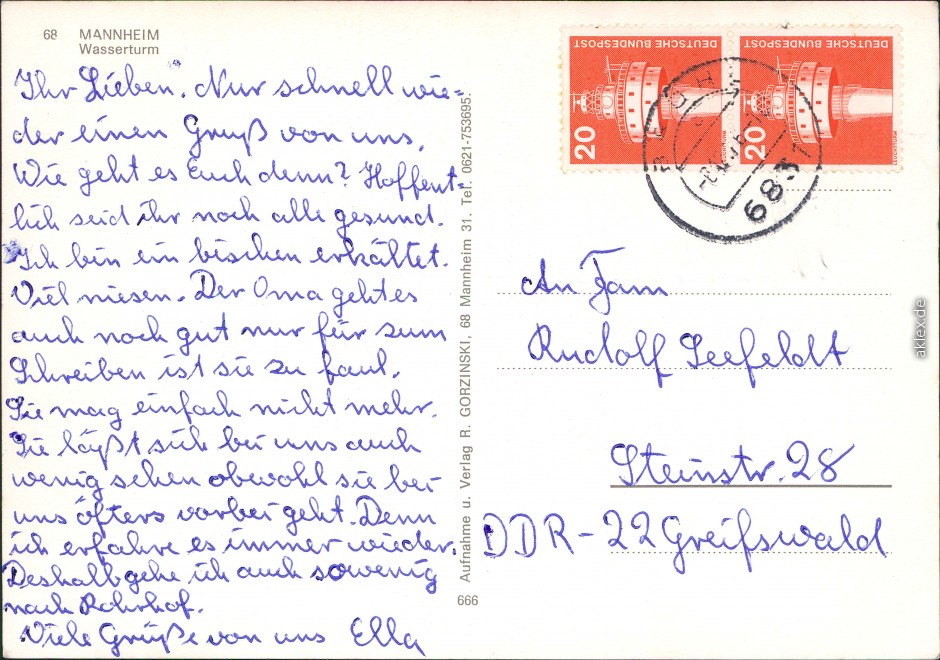 68 MANNHEIM
Wasserturm
Ihr Lieben. Nur schnell wie=
der einen Gruß von uns.
Wie geht es Euch denn? Hoffent=
lich seid ihr noch alle gesund.
Ich bin ein bischen erkältet.
Viel niesen. Der Oma geht es
auch noch gut nur für zum
Schreiben ist sie zu faul.
Sie mag einfach nicht mehr.
Sie läßt sich bei uns auch
wenig sehen obwohl sie bei
uns öfters vorbei geht. Denn
ich erfahre es immer wieder.
Deshalb gehe ich auch sowenig
nach Rohrhof.
Viele Grüße von uns Ella
Aufnahme u. Verlag R. GORZINSKI, 68 Mannheim 31. Tel. 0621-753695.
666
DEUTSCHE BUNDESPOST
20
LEUCHTTURM
DEUTSCHE BUNDESPOST
20
LEUCHTTURM
6831
An Fam
Rudolf Seefeldt
Steinstr. 28
DDR-22 Greifswald
aklex.de